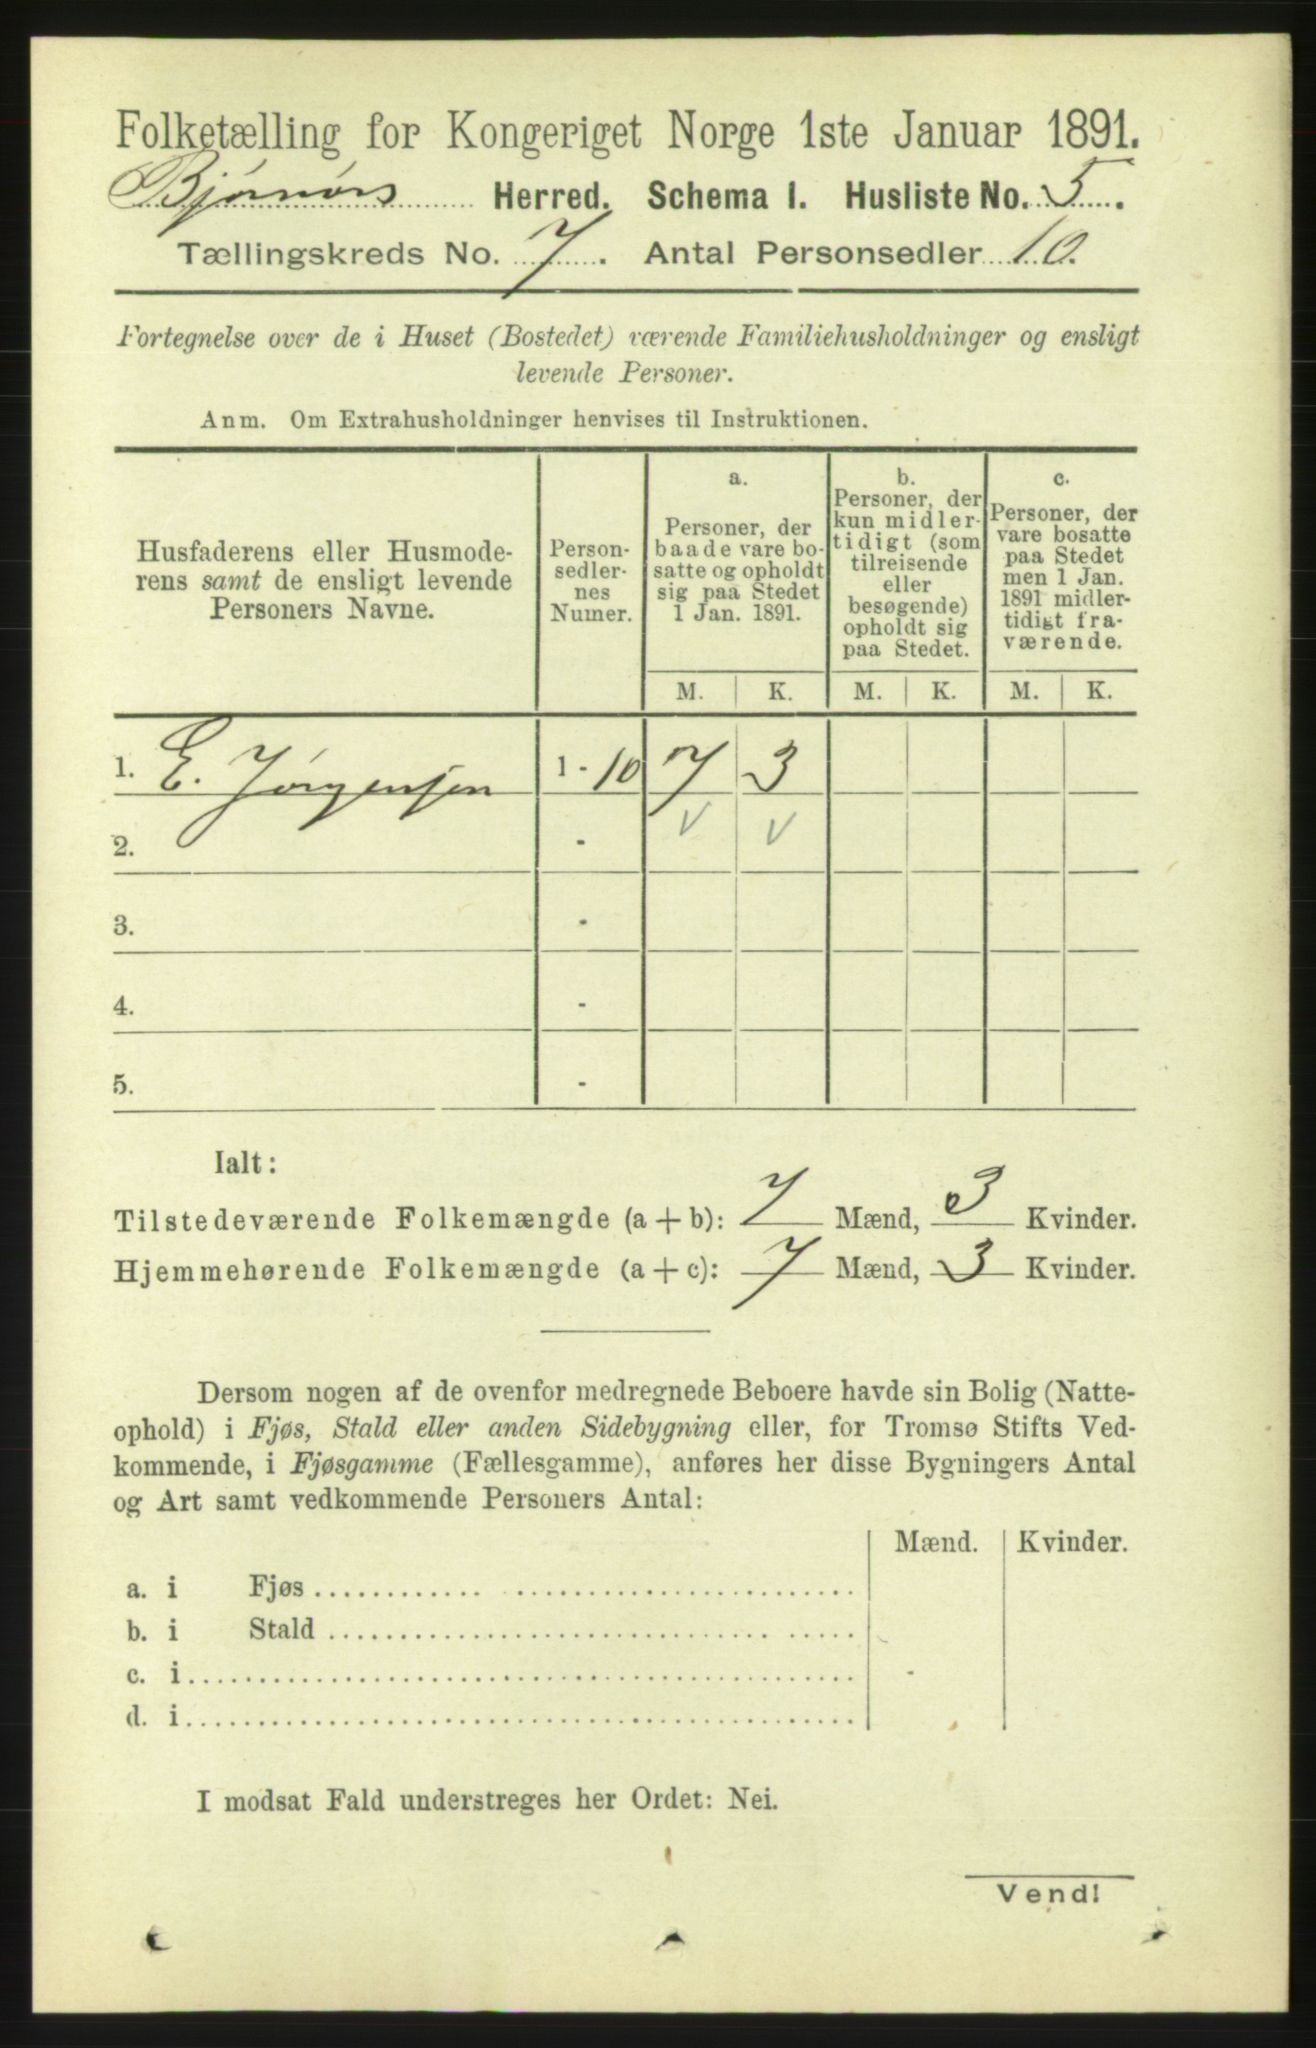 Folketælling for Kongeriget Norge 1ste Januar 1891.
Bjørnørs Herred. Schema I. Husliste No. 5.
Tællingskreds No. 7. Antal Personsedler 10.
Fortegnelse over de i Huset (Bostedet) værende Familiehusholdninger og ensligt
levende Personer.
Anm. Om Extrahusholdninger henvises til Instruktionen.
Husfaderens eller Husmode-
rens samt de ensligt levende
Personers Navne.
Person-
sedler-
nes
Numer.
a.
Personer, der
baade vare bo-
satte og opholdt
sig paa Stedet
1 Jan. 1891.
b.
Personer, der
kun midler-
tidigt (som
tilreisende
eller
besøgende)
opholdt sig
paa Stedet.
c.
Personer, der
vare bosatte
paa Stedet
men 1 Jan.
1891 midler-
tidigt fra-
værende.
M. K. M. K. M. K.
1. E. Jørgensen 1 - 10 7 3
2. - V V
3. -
4. -
5. -
Ialt:
Tilstedeværende Folkemængde (a + b): 7 Mænd, 3 Kvinder.
Hjemmehørende Folkemængde (a + c): 7 Mænd, 3 Kvinder.
Dersom nogen af de ovenfor medregnede Beboere havde sin Bolig (Natte-
ophold) i Fjøs, Stald eller anden Sidebygning eller, for Tromsø Stifts Ved-
kommende, i Fjøsgamme (Fællesgamme), anføres her disse Bygningers Antal
og Art samt vedkommende Personers Antal:
Mænd. Kvinder.
a. i Fjøs
b. i Stald
c. i
d. i
I modsat Fald understreges her Ordet: Nei.
Vend!